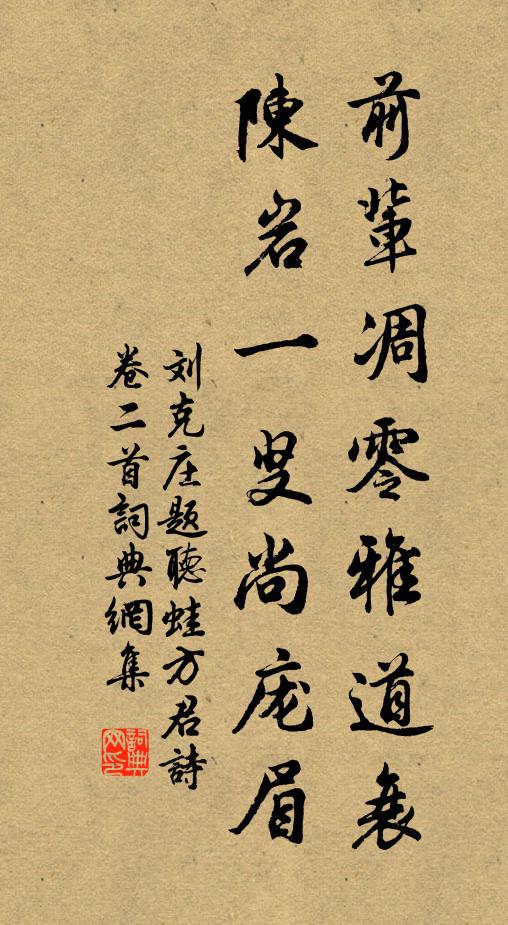 前輩凋零雅道衰
陳岩一叟尚庞眉
刘克庄题聽蛙方君詩
卷二首詞典網集
詞典網印